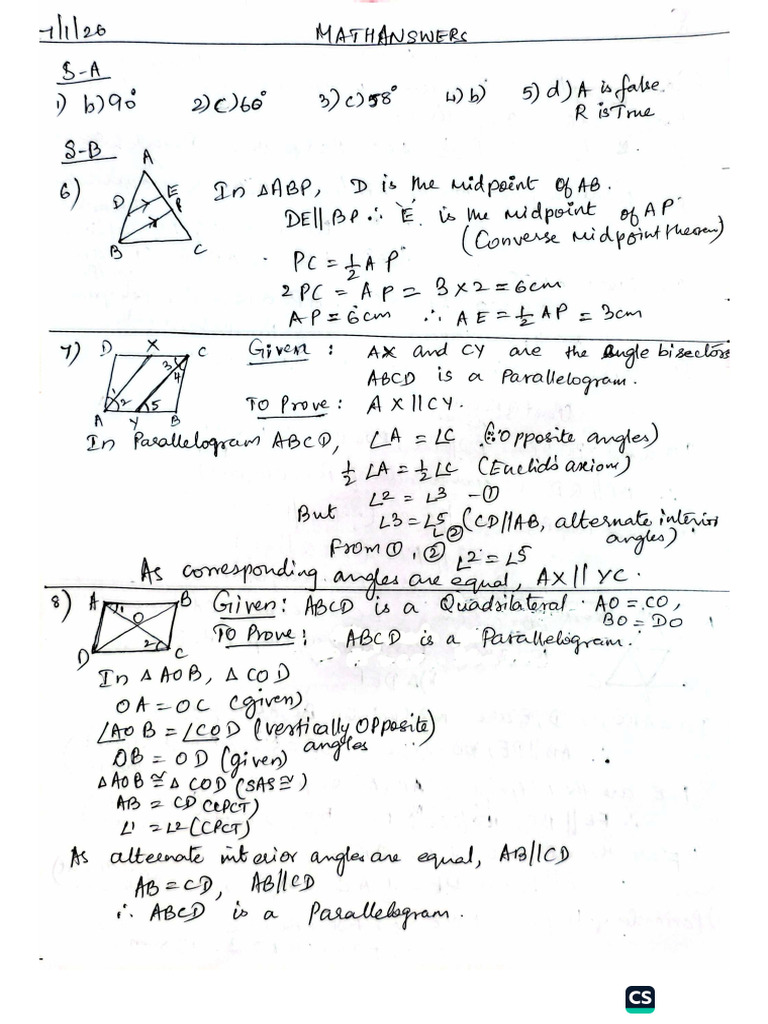 7/1/26 MATH ANSWERS
S-A
1) b) 90° 2) c) 60° 3) c) 58° 4) b) 5) d) A is false.
R is True
S-B
6) A D E P B C In △ABP, D is the midpoint of AB.
DE||BP ∴ 'E' is the midpoint of AP
(Converse midpoint theorem)
PC = 1/2 AP
2PC = AP = 3×2 = 6cm
AP = 6cm ∴ AE = 1/2 AP = 3cm
7) D X C 3 4 1 2 5 A Y B Given: AX and CY are the angle bisectors
ABCD is a Parallelogram.
To Prove: AX || CY.
In Parallelogram ABCD, ∠A = ∠C (∵ Opposite angles)
1/2 ∠A = 1/2 ∠C (Euclid's axiom)
∠2 = ∠3 -①
But ∠3 = ∠5 (CD//AB, alternate interior
∠② angles)
From ①, ② ∠2 = ∠5
As corresponding angles are equal, AX || YC.
8) A B 1 O 2 D C Given: ABCD is a Quadrilateral. AO = CO,
BO = DO
To Prove: ABCD is a Parallelogram.
In △AOB, △COD
OA = OC (given)
∠AOB = ∠COD (vertically opposite)
angles
OB = OD (given)
△AOB ≅ △COD (SAS ≅)
AB = CD (CPCT)
∠1 = ∠2 (CPCT)
As alternate interior angles are equal, AB//CD
AB = CD, AB//CD
∴ ABCD is a Parallelogram.
CS